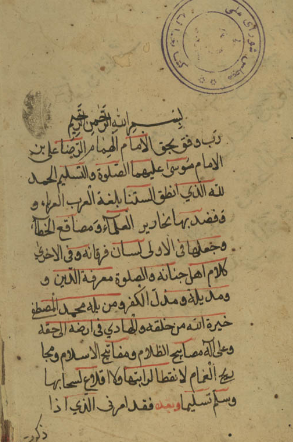 بسم الله الرحمن الرحيم
رب وفق بحق الامام الهمام الرضا على بن
الامام موسى عليهما الصلوة والتسليم الحمد
لله الذي انطق السنتنا بلغة العرب العرباء و
بها نحارير العلماء ومصاقع الخطباء
وجعلها في الاولى لسان فرقانه وفي الاخرى
كلام اهل جنانه والصلوة معرفة الدين و
ومذلل الكفر ومن يله محمد المصطفى
خيرة الله من خلقه والهادي في ارضه الى حقه
وعلى آله مصابيح الظلام ومفاتيح الاسلام
الغمام لا انقطاع لراتبها ولا اقلاع لسحابها
وسلم تسليما وبعد فقد امرني الذي اذا